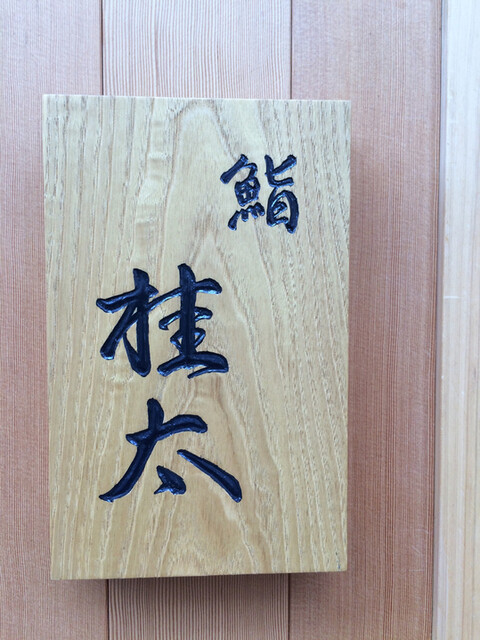 鮨
桂太